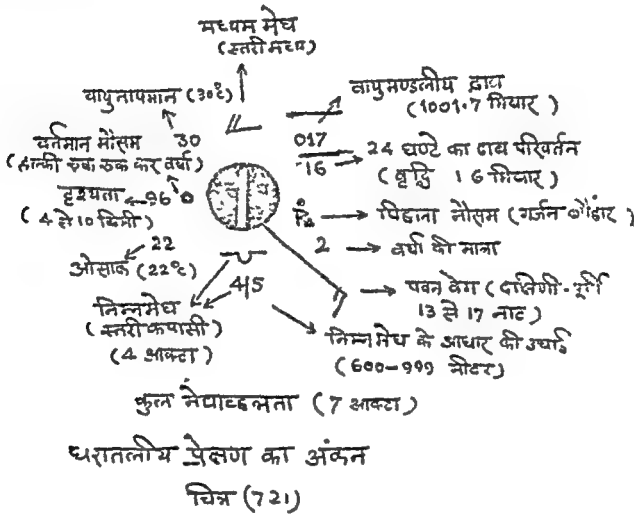 मध्यम मेघ
(स्तरी मध्य)
वायुतापमान (30°c)
वायुमण्डलीय दाब
(1001.7 मिबार)
वर्तमान मौसम 30
(हल्की रुक रुक कर वर्षा)
017
16
24 घण्टे का दाब परिवर्तन
(वृद्धि 16 मिबार)
दृश्यता 96
(4 से 10 किमी)
पिछला मौसम (गर्जन
2 वर्षा की मात्रा
22
ओसांक (22°c)
4/5
पवन वेग (दक्षिणी-पूर्वी
13 से 17 नाट)
निम्नमेघ
(स्तरी कपासी)
(4 आक्टा)
निम्नमेघ के आधार की ऊंचाई
(600-999 मीटर)
कुल मेघाच्छन्नता (7 आक्टा)
धरातलीय प्रेक्षण का अंकन
चित्र (721)